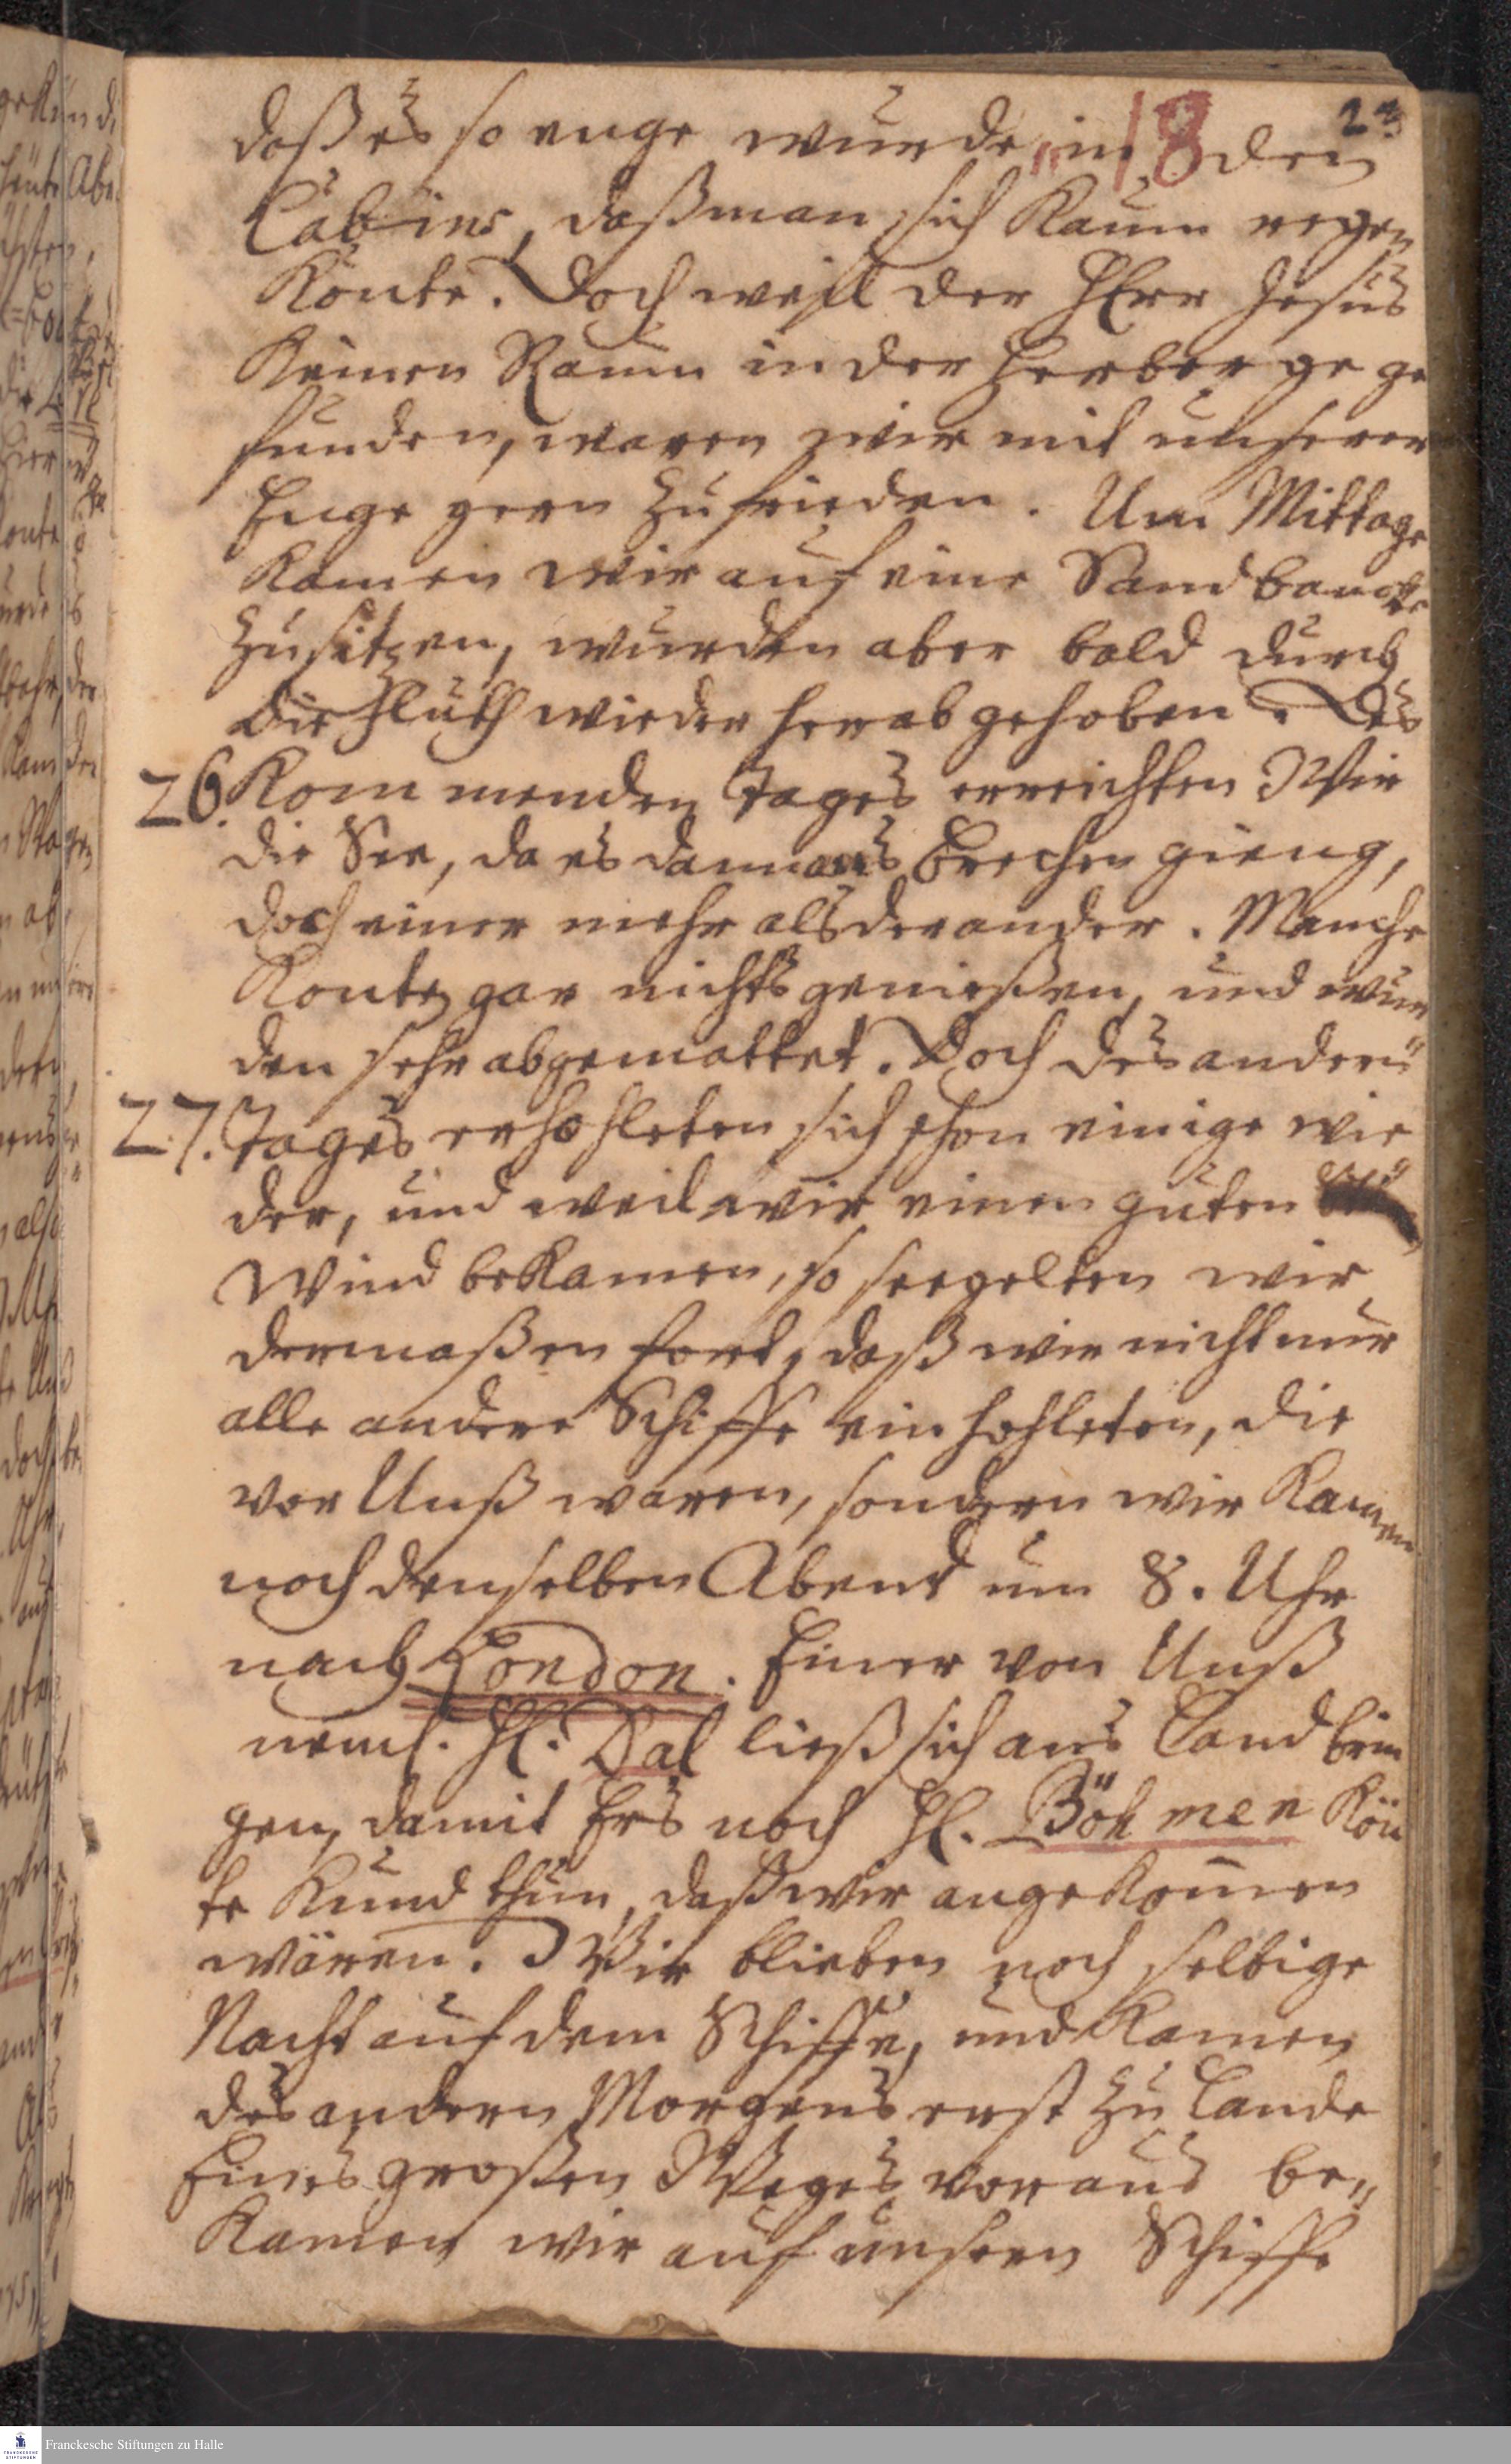 23
18
daß es so enge wurde in den
Cabins, daß man sich kaum regen
konte. Doch weil der HErr Jesus
keinen Raum in der Herberge ge
funden, waren wir mit unserer
Enge gern zufrieden. Um Mittage
kamen wir auf eine Sandbancke
zusitzen, wurden aber bald durch
die Fluth wieder herab gehoben. Des
26. kommenden Tages erreichten Wir
die See, da es dann ans Brechen gieng,
doch einer mehr als der ander. Manche
konten gar nichts genießen, und wur
den sehr abgemattet. Doch des andern
27. Tages erhohleten sich schon einige wie
der, und weil wir einen guten
Wind bekamen, so seegelten wir
dermaßen fort, daß wir nicht nur
alle andere Schiffe einhohleten, die
vor Unß waren, sondern wir kamen
noch denselben Abend um 8. Uhr
nach London. Einer von Unß
neml. H. Dal ließ sich ans Land brin
gen, damit Ers noch H. Böhmen kön
te kund thun, daß wir angekom̄en
wären. Wir blieben noch selbige
Nacht auf dem Schiffe, und kamen
des andern Morgens erst zu Lande
Eines großen Weges voraus be„
kamen wir auf unserm Schiffe
Franckesche Stiftungen zu Halle